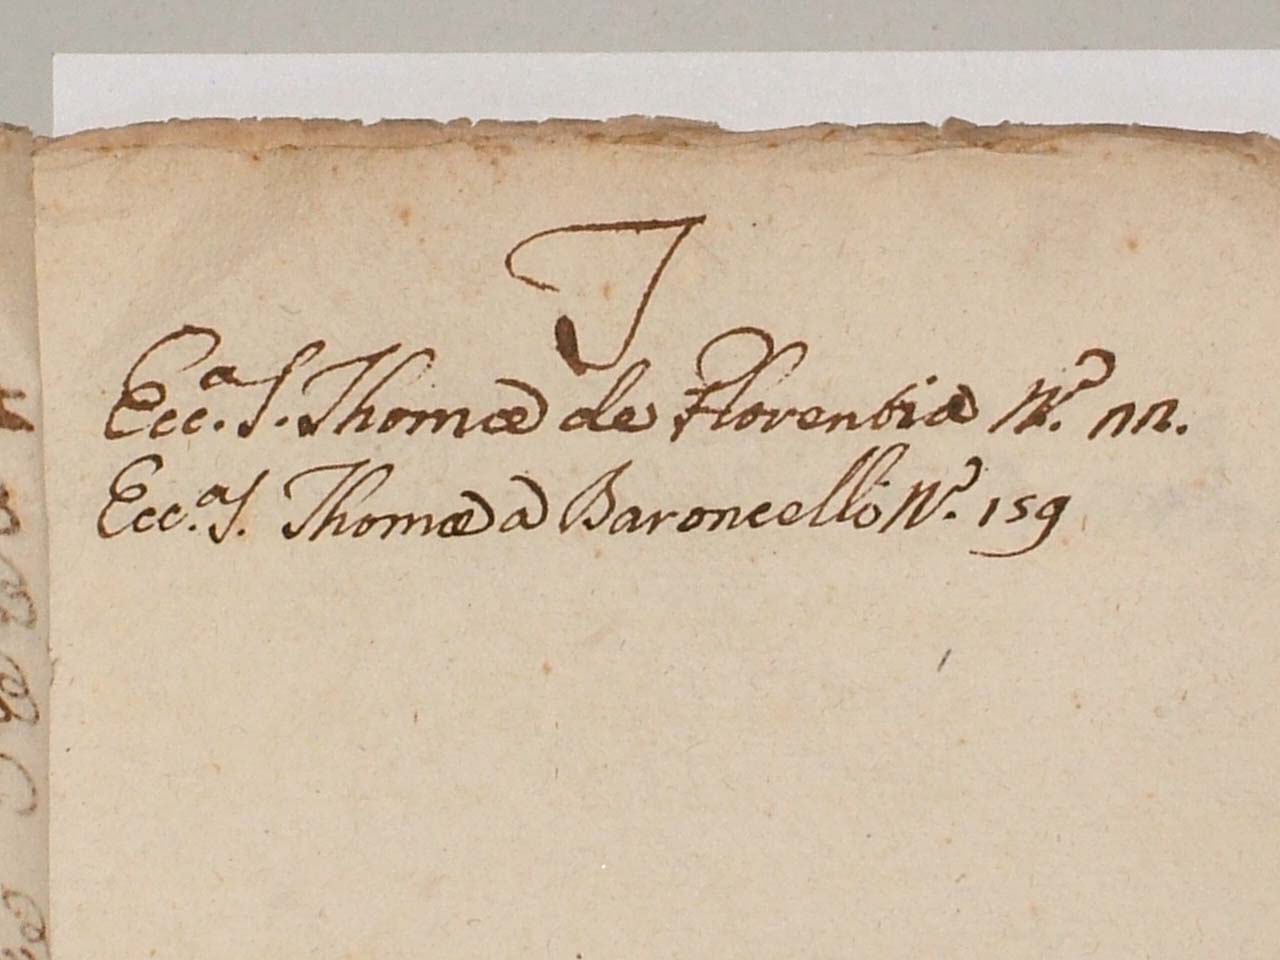 T
Ecc.ª S. Thomæ de Florentia N.º 111.
Ecc.ª S. Thomæ a Baroncelli N.º 159